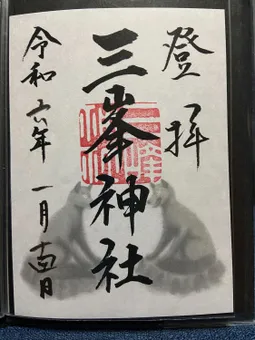 登拝
三峯神社
令和六年一月十四日